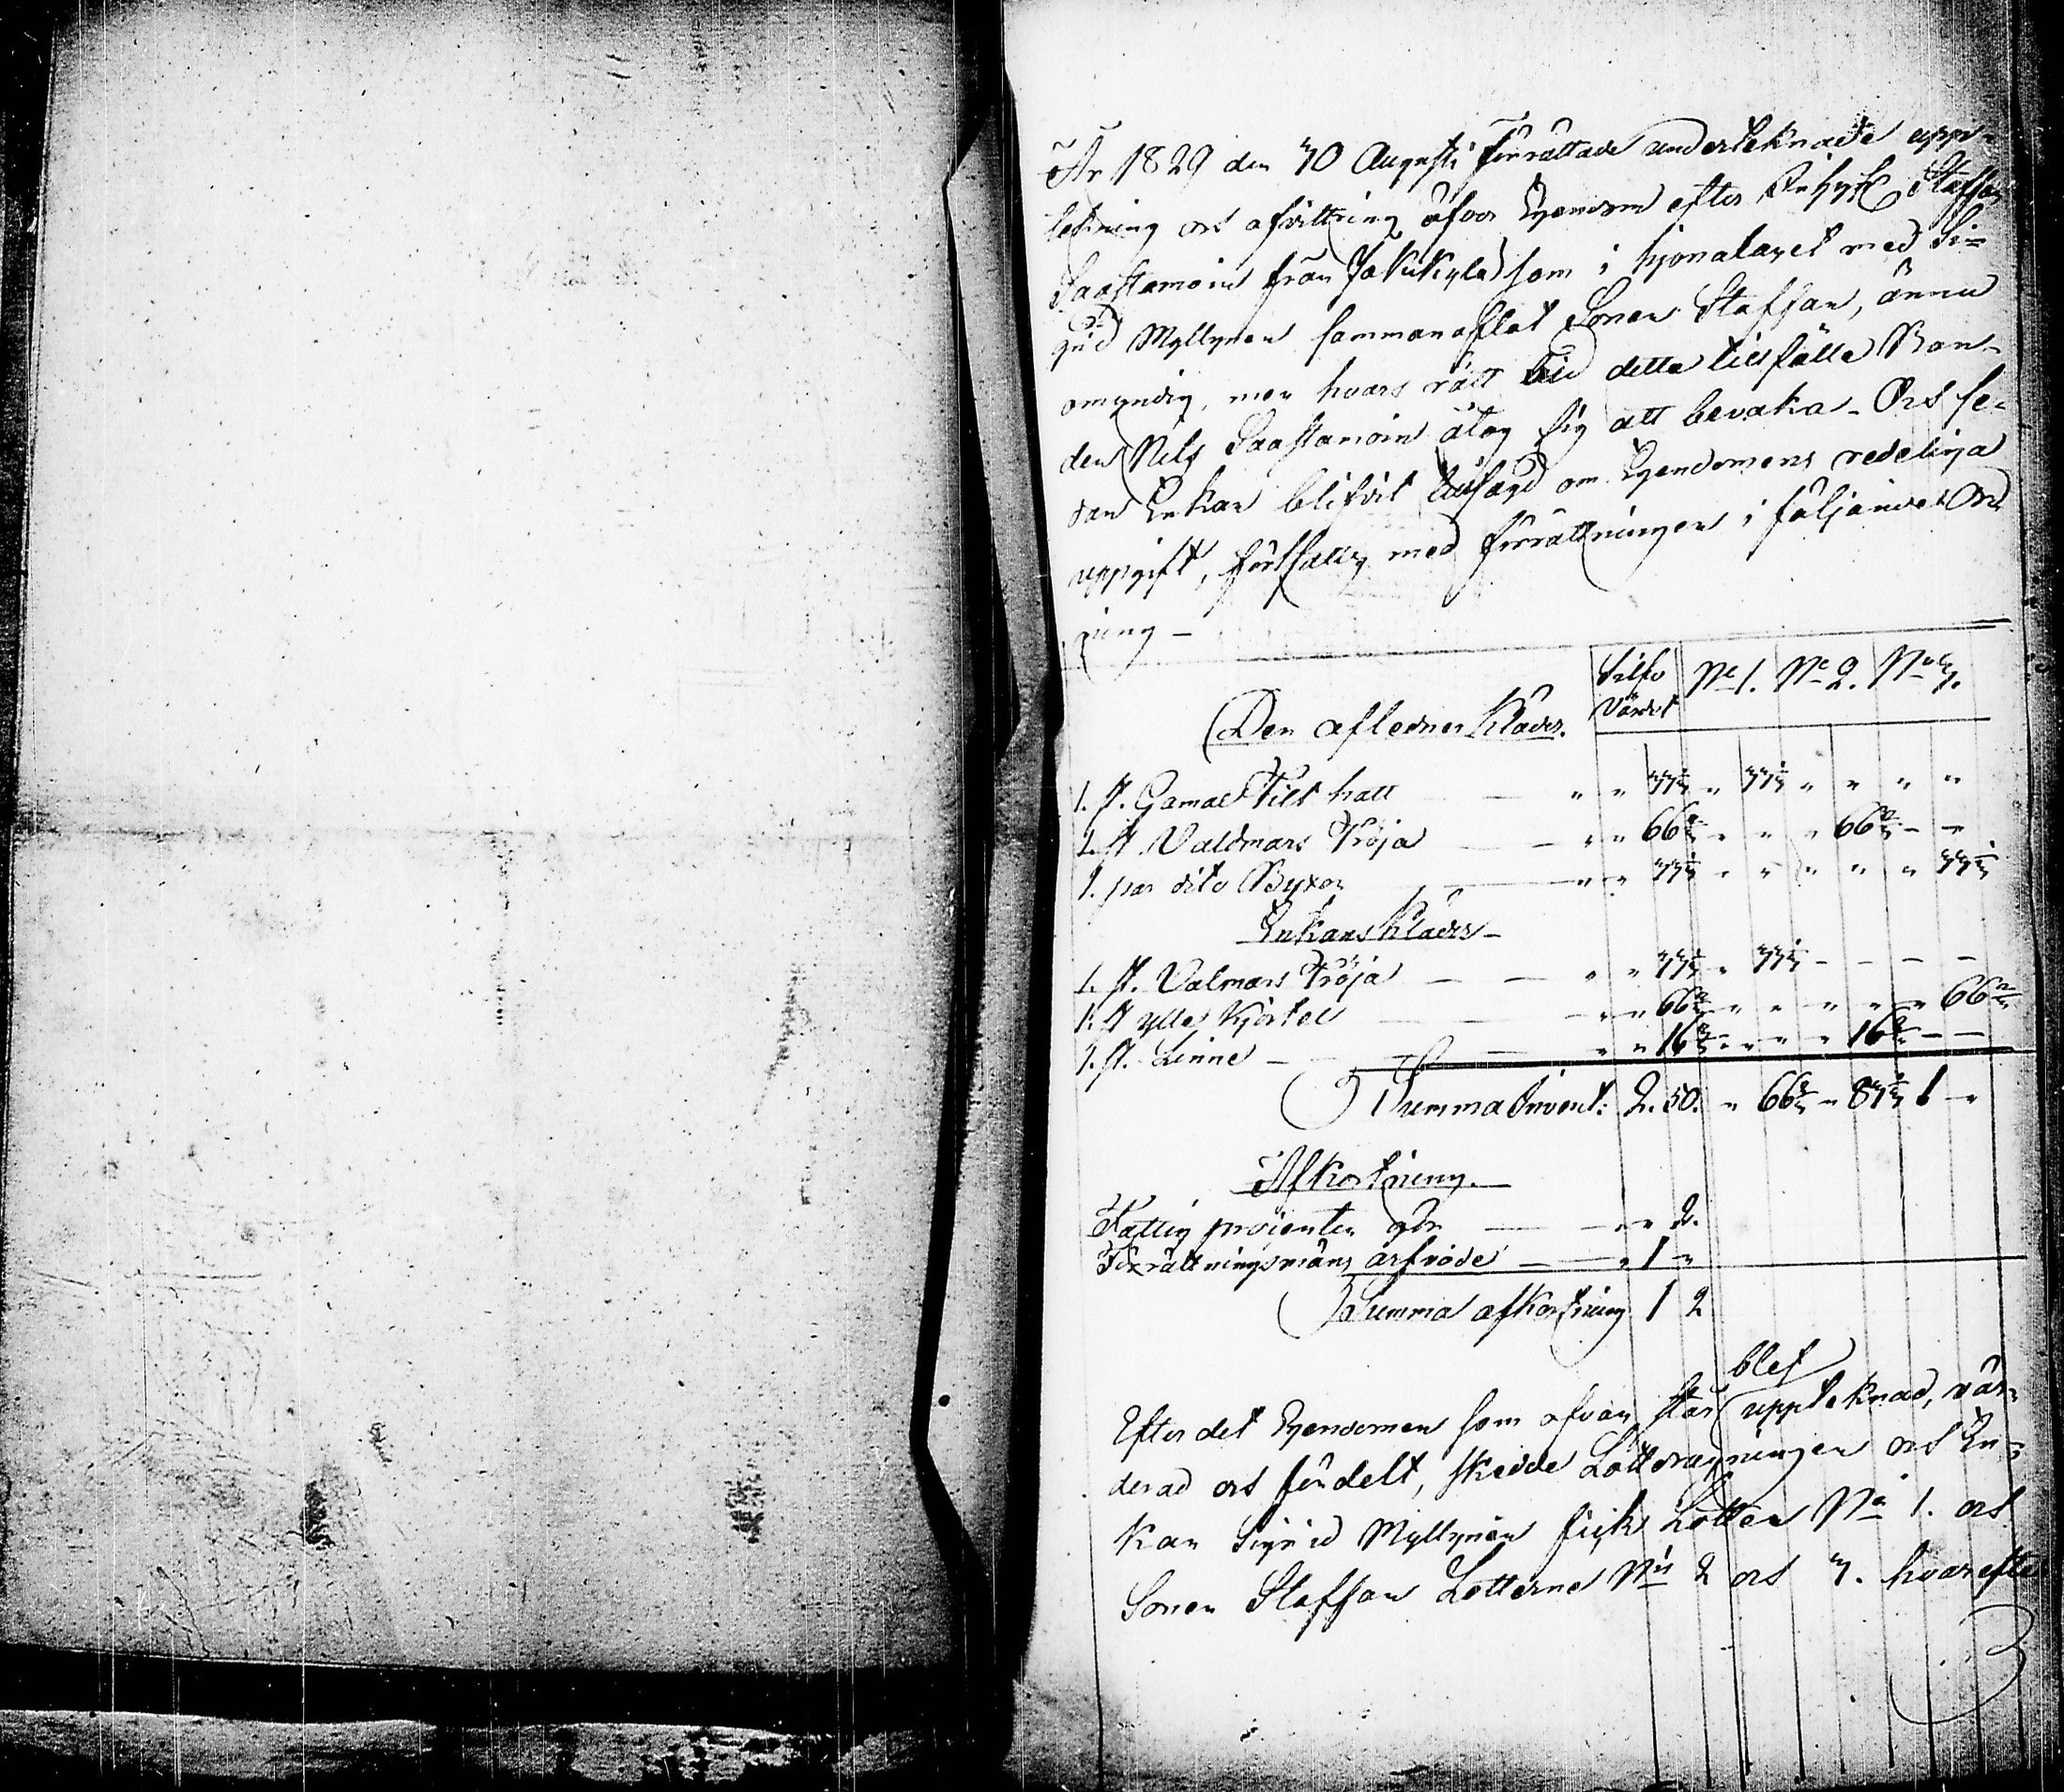 År 1829 den 30 Augusti förrättade underteknade upp-
tekning och afvittring öfver Egendom efter Inhyses Staffan
Saastamoin från Jokikylä som i hjonalaget med Si-
grid Myllynen sammanaflat Sonen Staffan, ännu
omyndig, men hvars rätt vid detta tillfälle Bon-
den Nils Saastamoin åtog sig att bevaka. Och se-
dan Enkan blifvit tillsagd om Egendomens redeliga
uppgift, förtfattes med förrättningen i följande Ord-
ning -
Silfv
Värdet No 1. No 2. No 3.
Den aflednes Kläder.
1. st. Gamal Filt hatt " " 33 1/3 " 33 1/3 " " " "
1. st Valdmars Tröja " " 66 2/3 " " " 66 2/3 - "
1. par dito Byxor " " 33 1/3 " " " " " 33 1/3
Enkans Kläder -
1. st. Valmars Tröja " " 33 1/3 " 33 1/3 - - - -
1. st ylle Kjortel " " 66 2/3 " " " " " 66 2/3
1. st. Linne - " " 16 2/3 " " " " 16 2/3 - -
Summa Invent: 2. 50. " 66 2/3 " 83 1/3 1 "
Afkortning.
Fattig procenten gör " " 2.
Förrättningsmäns arfvode " 1 "
Summa afkortning 1 2
blef
Efter det Egendomen som ofvan står uppteknad, vär-
derad och fördelt, skedde Lottdragningen och En-
kan Sigrid Myllynen fick Lotten No 1. och
Sonen Staffan Lotterne No 2 och 3. hvarefter